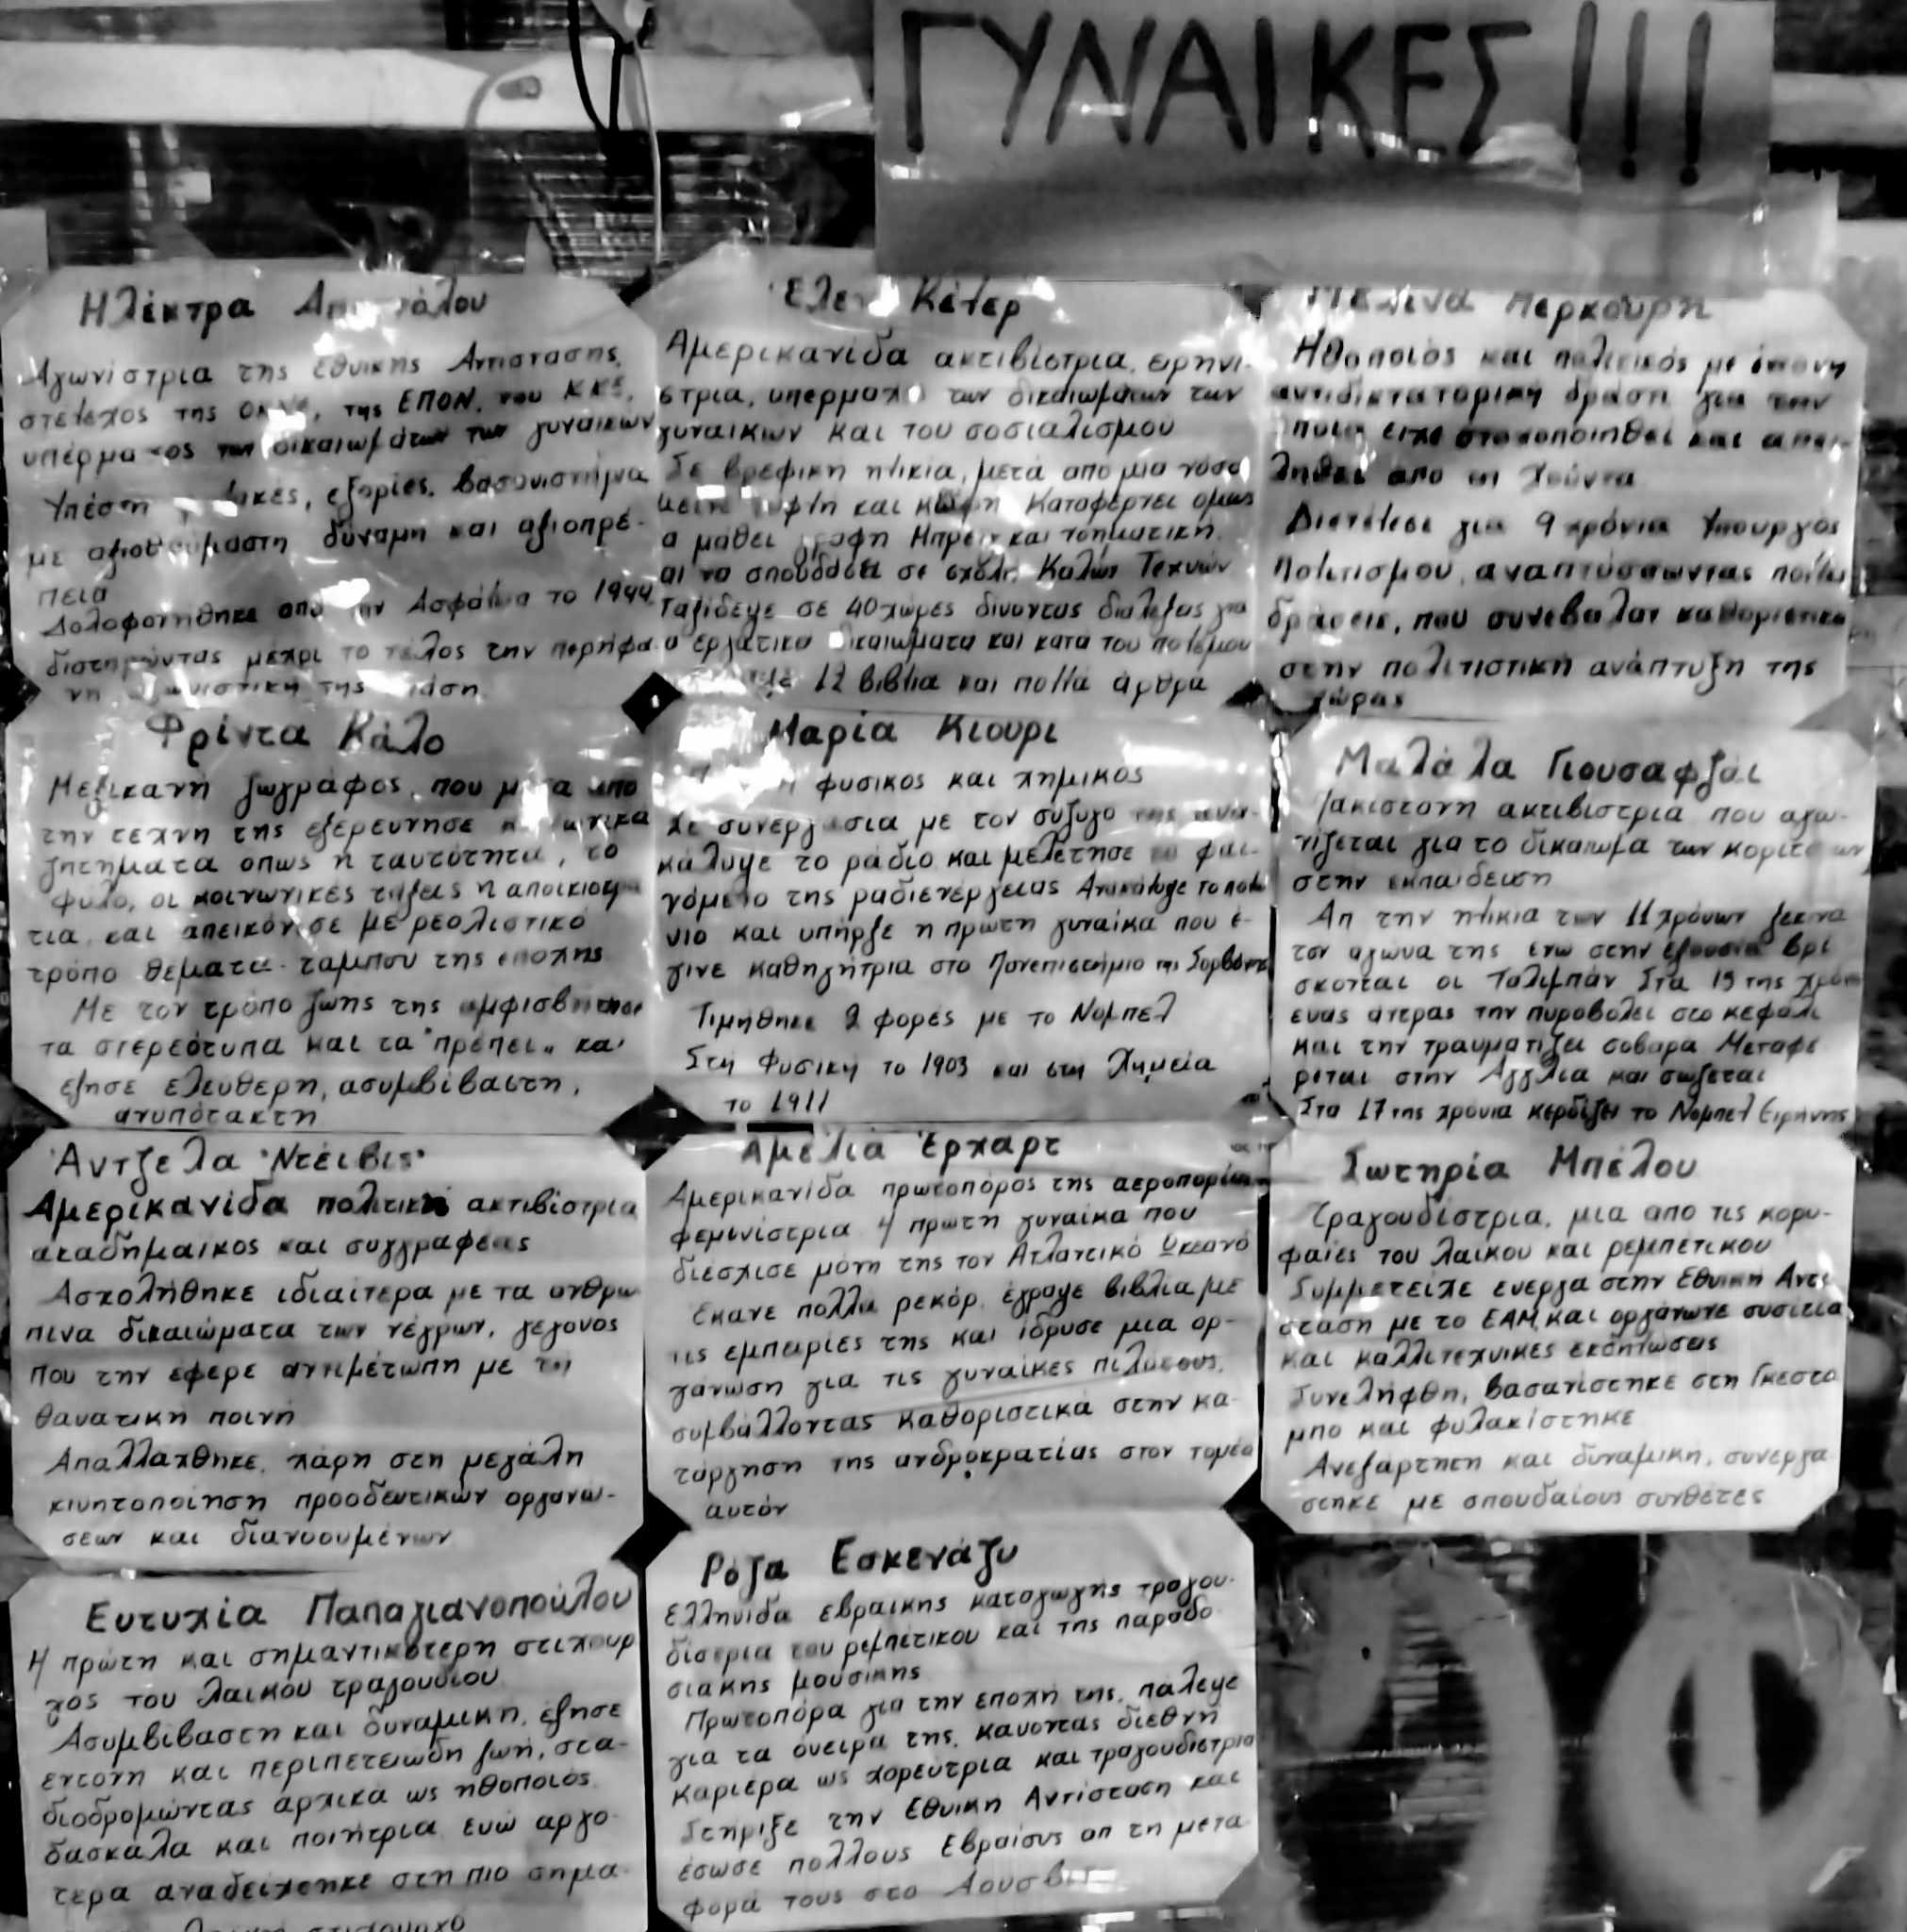 ΓΥΝΑΙΚΕΣ!!!
Ηλέκτρα
Αγωνίστρια της Εθνικης Αντιστασης,
στελεχος της της ΕΠΟΝ, του ΚΚΕ,
των δικαιωμάτων των γυναικων
Υπέστη εξορίες, βασανιστήρια
με αξιοθαύμαστη δύναμη και αξιοπρέ-
πεια
Δολοφονήθηκε από την Ασφάλεια το 1944
διατηρώντας μεχρι το τέλος την περήφα
νη της
Έλεν Κέλερ
Αμερικανίδα ακτιβίστρια, ειρηνι-
στρια, των δικαιωμάτων των
γυναικων και του σοσιαλισμού
Σε βρεφικη ηλικία, μετά απο μια νόσο
και Καταφέρνει ομως
α μάθει γραφη και νοηματική.
αι να σπουδάσει σε σχολη Καλων Τεχνών
Ταξίδεψε σε 40 χωρες δίνοντας διαλέξεις για
α εργατικα δικαιωματα και κατα του πολέμου
12 βιβλια και πολλα άρθρα
Μελίνα Μερκούρη
Ηθοποιός και πολιτικός με έντονη
αντιδικτατορικη δράση για την
οποία ειχε στοχοποιηθεί και απει-
ληθεί απο τη Χούντα
Διετέλεσε για 9 χρόνια Υπουργός
Πολιτισμου, αναπτύσσωντας
δράσεις, που συνεβαλαν καθοριστικα
στην πολιτιστικη ανάπτυξη της
χώρας
Φρίντα Κάλο
Μεξικανη ζωγράφος, που μέσα απο
την τεχνη της εξερευνησε
ζητηματα οπως η ταυτότητα, το
φυλο, οι κοινωνικές τάξεις η αποικιοκρα
τια, και απεικόνισε με ρεαλιστικό
τρόπο θεματα-ταμπου της εποχης
Με τον τρόπο ζωης της αμφισβητησε
τα στερεότυπα και τα "πρέπει" και
εζησε ελευθερη, ασυμβίβαστη,
ανυπότακτη
Μαρία Κιουρι
φυσικος και χημικος
Σε συνεργασια με τον σύζυγο της ανα-
κάλυψε το ράδιο και μελέτησε το φαι-
νόμενο της ραδιενέργειας Ανακάλυψε το πολώ
νιο και υπήρξε η πρωτη γυναίκα που έ-
γινε καθηγήτρια στο Πανεπιστήμιο της Σορβόνης
Τιμήθηκε 2 φορές με το Νομπελ
Στη Φυσικη το 1903 και στη Χημεία
το 1911
Μαλάλα Γιουσαφζάι
Πακιστανη ακτιβιστρια που αγω-
νίζεται για το δικαιωμα των κοριτσιων
στην εκπαιδευση
Απ την ηλικια των 11 χρόνων ξεκινα
τον αγωνα της ενω στην εξουσια βρί
σκονται οι Ταλιμπάν Στα 15 της χρόνια
ενας άντρας την πυροβολει στο κεφάλι
και την τραυματίζει σοβαρα Μεταφέ
ρεται στην Αγγλια και σωζεται
Στα 17 της χρόνια κερδίζει το Νομπελ Ειρήνης
Άντζελα Ντέιβις
Αμερικανίδα πολιτικη ακτιβίστρια
ακαδημαικος και συγγραφέας
Ασχολήθηκε ιδιαίτερα με τα ανθρω
πινα δικαιώματα των νέγρων, γεγονος
που την εφερε αντιμέτωπη με τη
θανατικη ποινή
Απαλλαχθηκε, χάρη στη μεγάλη
κινητοποίηση προοδευτικών οργανω-
σεων και διανοουμένων
Αμέλια Έρχαρτ
Αμερικανίδα πρωτοπόρος της αεροπορίας
φεμινίστρια Η πρωτη γυναίκα που
διέσχισε μόνη της τον Ατλαντικό Ωκεανό
Εκανε πολλα ρεκόρ, έγραψε βιβλια με
τις εμπειρίες της και ίδρυσε μια ορ-
γάνωση για τις γυναίκες πιλότους,
συμβάλλοντας καθοριστικά στην κα-
τάργηση της ανδροκρατίας στον τομέα
αυτόν
Σωτηρία Μπέλου
Τραγουδίστρια, μια απο τις κορυ-
φαίες του λαικου και ρεμπετικου
Συμμετείχε ενεργα στην Εθνικη Αντί
σταση με το ΕΑΜ και οργάνωνε συσίτια
και καλλιτεχνικες εκδηλωσεις
Συνελήφθη, βασανίστηκε στη Γκεστα
μπο και φυλακίστηκε
Ανεξαρτητη και δυναμικη, συνεργά
στηκε με σπουδαίους συνθέτες
Ευτυχία Παπαγιανοπούλου
Η πρώτη και σημαντικότερη στιχουρ
γος του λαικου τραγουδιου
Ασυμβίβαστη και δυναμικη, έζησε
εντονη και περιπετειωδη ζωη, στα-
διοδρομώντας αρχικα ως ηθοποιός
δασκάλα και ποιήτρια ενω αργό-
τερα αναδείχτηκε στη πιο σημα-
Ρόζα Εσκενάζυ
Ελληνιδα εβραικης καταγωγης τραγου-
δίστρια του ρεμπέτικου και της παραδο-
σιακης μουσικης
Πρωτοπόρα για την εποχη της, πάλεψε
για τα όνειρα της, κανοντας διεθνη
καριέρα ως χορεύτρια και τραγουδίστρια
Στήριξε την Εθνικη Αντίσταση και
έσωσε πολλους Εβραίους απ τη μετα-
φορά τους στο